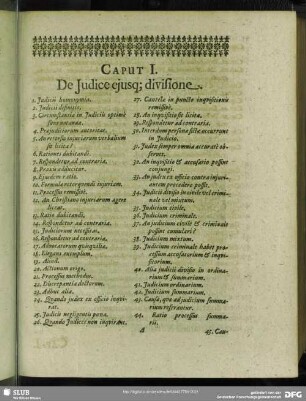 CAPUT I.
De Judice ejusq; divisione.
1. Judicii homonymia.
2. Judicii definitio.
3. Circumstantia in Judiciis optimè
observandæ.
4. Præjudiciorum autoritas.
5. An retorsio injuriarum verbalium
sit licita?
6. Rationes dubitandi.
7. Respondetur ad contraria.
8. Praxis
9. Ejusdem ratio.
10. Formula retorquendi injuriam.
11. Processus remissivi.
12. An Christiano injuriarum agere
liceat.
13. Ratio dubitandi.
14. Respondetur ad contraria.
15. Judiciorum necessitas.
16. Respondetur ad contraria.
17. 
18. Elegans exemplum.
19. Aliud.
20. Actionum origo.
21. Processus methodus.
22. Discrepantia doctorum.
23. Adhuc alia.
24. Quando judex ex officio inqui-
rat.
25. Judicis negligentis pœna.
26. Quando Judici non inquirens.
27. Cautela in puncto inquisitionis
remissæ.
28. An inquisitio sit licita.
29. Respondetur ad contraria.
30. Interdum persona ficta occurrunt
in Judiciis.
31. Judex semper omnia accuratè ob-
servet.
32. An inquisitio & accusatio possint
conjungi.
33. An judex ex officio contra injuri-
antem procedere possit.
34. Judicii divisio in civile vel crimi-
nale vel mixtum.
35. Judicium civile.
36. Judicium criminale.
37. An judicium civile & criminale
possint cumulari?
38. Judicium mixtum.
39. Judicium criminale habet pro-
cessum accusatorium & inqui-
sitorium.
40. Alia judicii divisio in ordina-
rium & summarium.
41. Judicium ordinarium.
42. Judicium summarium.
43. Causæ, quæ ad judicium summa-
rium referantur.
44. Ratio processus summa-
rii.
A
45. Cau-
SLUB
DFG